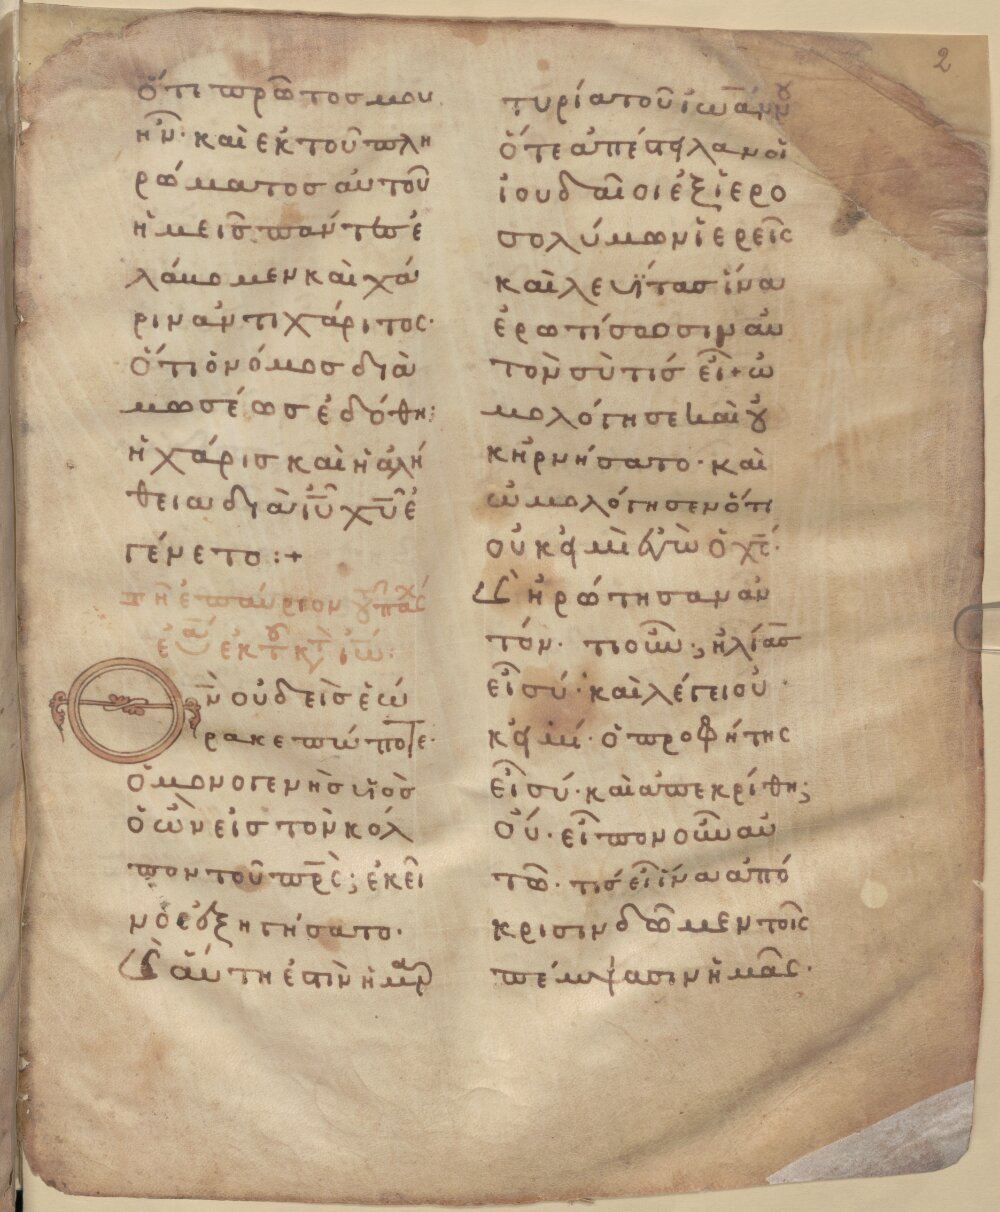 2
ὅτι πρῶτοσ μου
ἦν· καὶ ἐκ τοῦ πλη
ρώματοσ αὐτοῦ
ἡμεῖσ πάντεσ ἐ
λάβομεν καὶ χά
ριν ἀντὶ χάριτος·
ὅτι ὁ νόμοσ διὰ
μωσέωσ ἐδόθη;
ἡ χάρισ καὶ ἡ ἀλή
θεια διὰ ἰῦ χῦ ἐ
γένετο:+
τῆ ἐπαύριον
ἐκ τ κτ ἰω:
Θν οὐδεὶσ ἑώ
ρακε πώποτε·
ὁ μονογενὴσ υἱὸσ
ὁ ὢν εἰσ τὸν κόλ
πον τοῦ πρς; ἐκεῖ
νὸσ ἐξηγήσατο·
Καὶ αὕτη ἐστὶν ἡ μαρ
τυρία τοῦ ἰωάννου
ὅτε ἀπέστειλαν οἱ
ἰουδαῖοι ἐξ ἱερο
σολύμων ἱερεῖς
καὶ λευΐτασ ἵνα
ἐρωτίσωσιν αὐ
τὸν σὺ τίσ εἶ+ ὡ
μολόγησε καὶ οὐ
κ ἠρνήσατο· καὶ
ὡμολόγησεν ὅτι
οὐκ εἰμὶ ἐγὼ ὁ χς·
Καὶ ἠρώτησαν αὐ
τόν· τί οὖν; ἠλίασ
εἶ σύ· καὶ λέγει οὐ
κ εἰμί· ὁ προφήτης
εἶ σύ· καὶ ἀπεκρίθη;
Οὔ· εἶπον οὖν αὐ
τῶ· τίσ εἶ ἵνα ἀπό
κρισιν δῶμεν τοῖς
πέμψασιν ἡμᾶς·